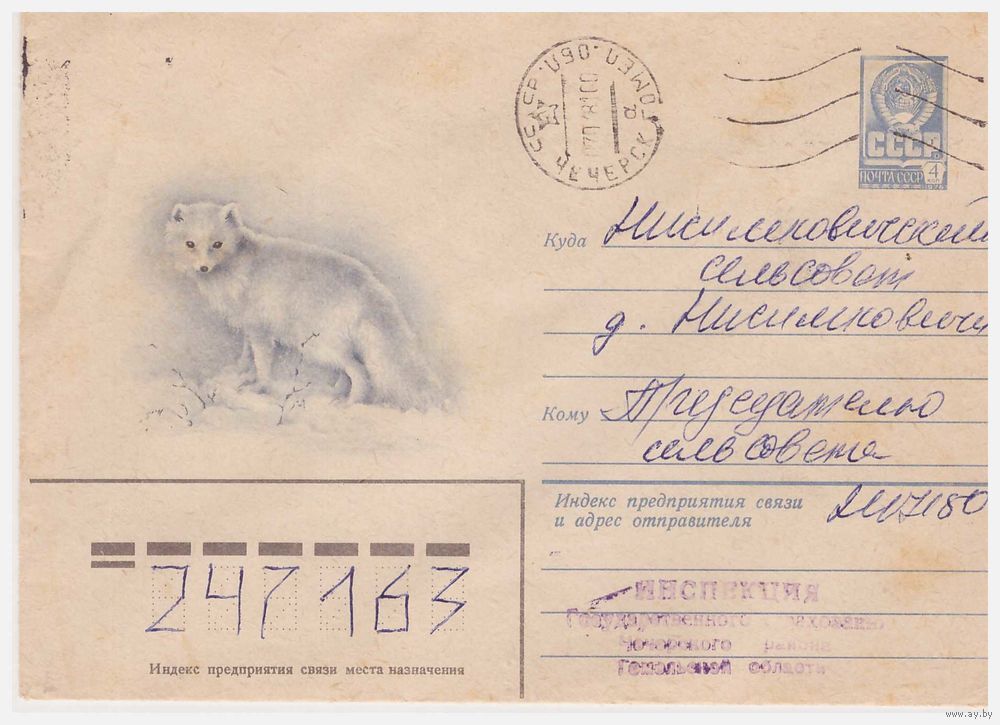 ЧЕЧЕРСК ГОМЕЛ. ОБЛ. БССР
СССР
ПОЧТА СССР
4
КОП
1976
Куда Нисимковический
сельсовет
д. Нисимковичи
Кому Председателю
сельсовета
Индекс предприятия связи
и адрес отправителя 247150
ИНСПЕКЦИЯ
Государственного страхования
Чечерского района
Гомельской области
247163
Индекс предприятия связи места назначения
www.ay.by